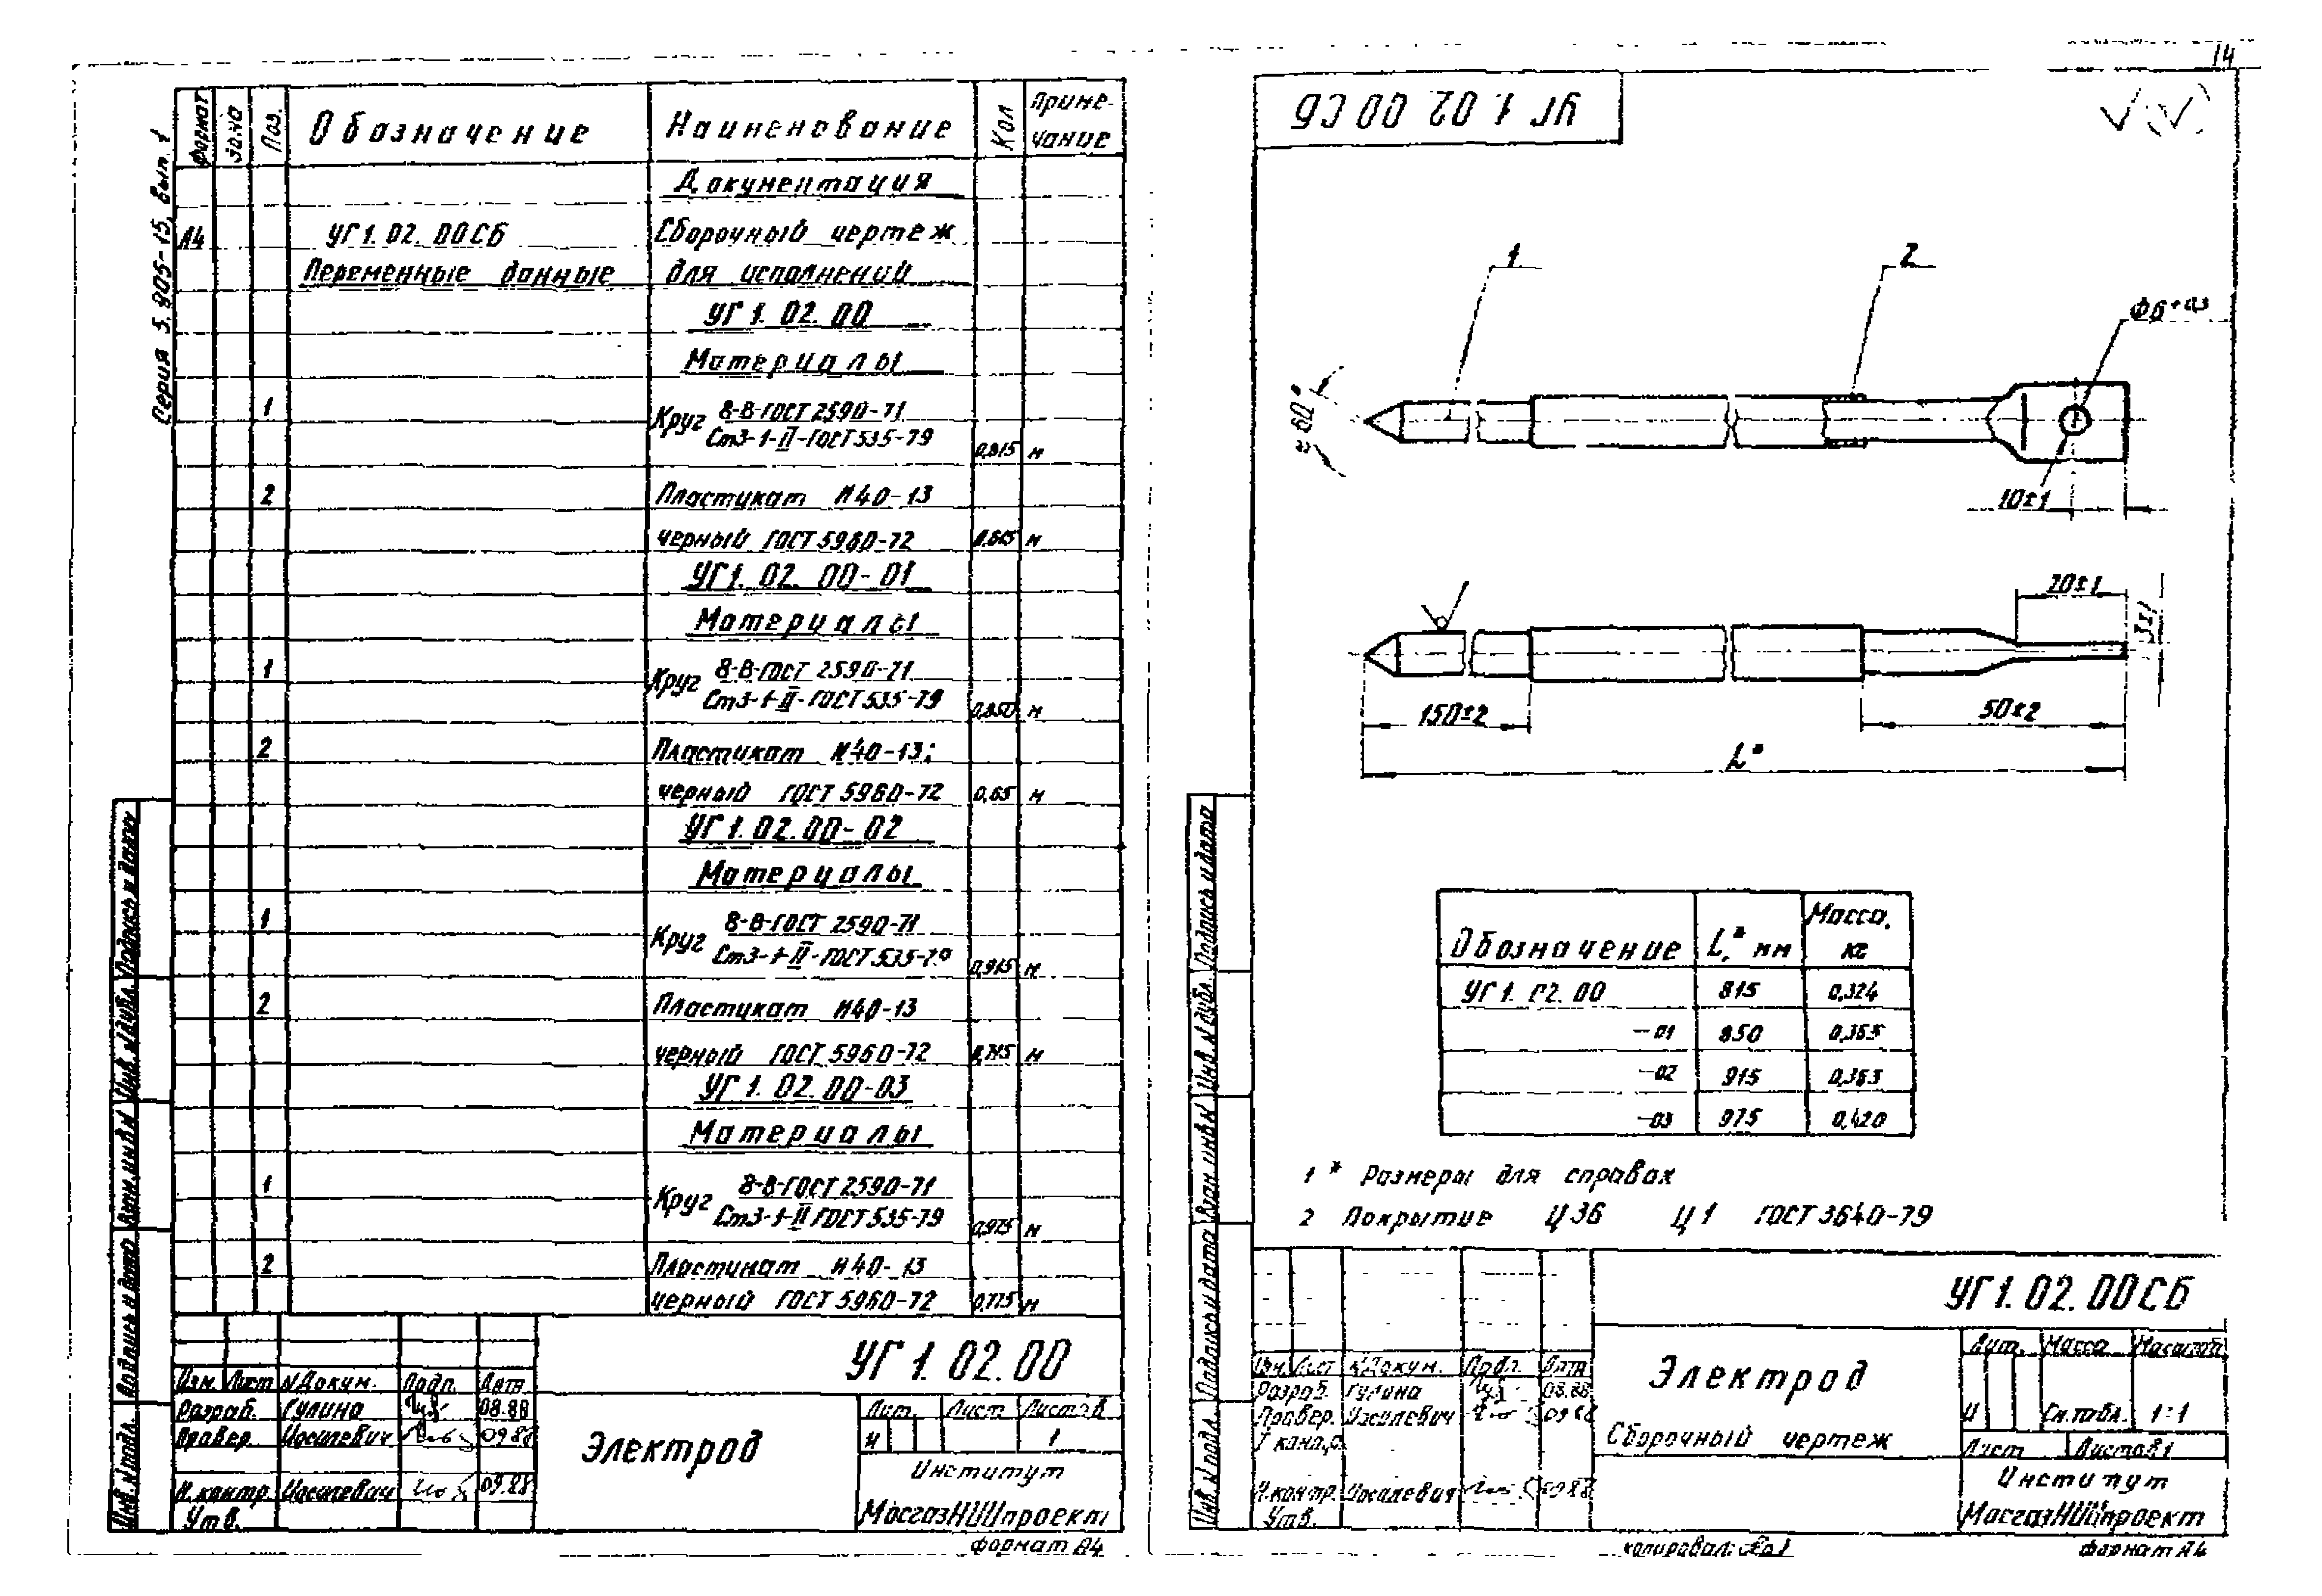 14
Серия 5.905-15, Вып. 1
Формат Зона Поз. Обозначение Наименование Кол Приме-
чание
Документация
А4 УГ1.02.00СБ Сборочный чертеж
Переменные данные для исполнений
УГ1.02.00
Материалы
1 Круг 8-В-ГОСТ 2590-71
Ст3-1-II-ГОСТ 535-79
0,815 м
2 Пластикат И40-13
черный ГОСТ 5960-72 0,615 м
УГ1.02.00-01
Материалы
1 Круг 8-В-ГОСТ 2590-71
Ст3-1-II-ГОСТ 535-79
0,850 м
2 Пластикат И40-13;
черный ГОСТ 5960-72 0,65 м
УГ1.02.00-02
Материалы
1 Круг 8-В-ГОСТ 2590-71
Ст3-1-II-ГОСТ 535-79
0,915 м
2 Пластикат И40-13
черный ГОСТ 5960-72 0,715 м
УГ1.02.00-03
Материалы
1 Круг 8-В-ГОСТ 2590-71
Ст3-1-II ГОСТ 535-79
0,975 м
2 Пластикат И40-13
черный ГОСТ 5960-72 0,775 м
УГ1.02.00
Изм. Лист №Докум. Подп. Дата
Разраб. Гулина 08.88
Провер. Иосилевич 09.88
Н.контр. Иосилевич 09.88
Утв.
Электрод
Лит. Лист Листов
И 1
Институт
МосгазНИИпроект
формат А4
Инв.№подл. Подпись и дата Взам.инв.№ Инв.№дубл. Подпись и дата
УГ1.02.00СБ
1
2
Ф6+0,3
≈60°
10±1
20±1
3±1
150±2
50±2
L*
Обозначение L,* мм Масса, кг
УГ1.02.00 815 0,324
-01 850 0,365
-02 915 0,363
-03 975 0,420
1 * Размеры для справок
2 Покрытие Ц36 Ц1 ГОСТ 3640-79
УГ1.02.00СБ
Изм. Лист №Докум. Подп. Дата
Разраб. Гулина 08.88
Провер. Иосилевич 09.88
Т контр.
Н.контр. Иосилевич 09.88
Утв.
Электрод
Сборочный чертеж
Лит. Масса Масштаб
И См.табл. 1:1
Лист Листов 1
Институт
МосгазНИИпроект
Инв.№подл. Подпись и дата Взам.инв.№ Инв.№дубл. Подпись и дата
копировал:
формат А4